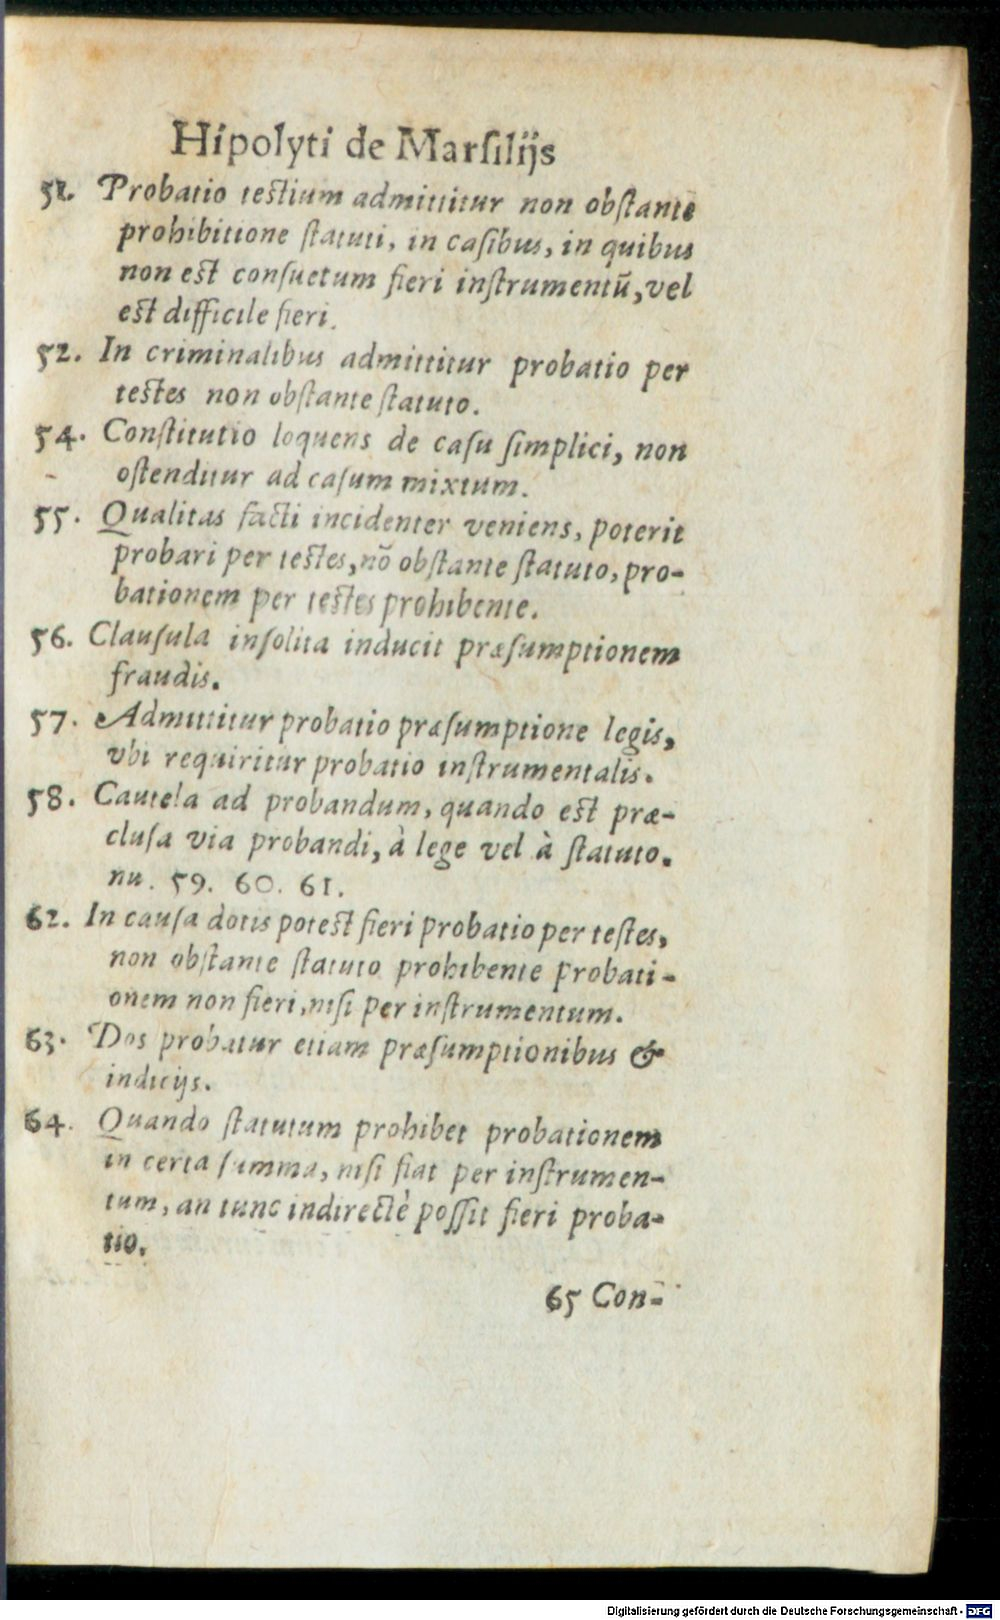 Hipolyti de Marſilijs
51. Probatio teſtium admittitur non obſtante
prohibitione ſtatuti, in caſibus, in quibus
non eſt conſuetum fieri inſtrumentū, vel
eſt difficile fieri.
52. In criminalibus admittitur probatio per
teſtes non obſtante ſtatuto.
54. Conſtitutio loquens de caſu ſimplici, non
oſtenditur ad caſum mixtum.
55. Qualitas facti incidenter veniens, poterit
probari per teſtes, nō obſtante ſtatuto, pro-
bationem per teſtes prohibente.
56. Clauſula inſolita inducit præſumptionem
fraudis.
57. Admittitur probatio præſumptione legis,
vbi requiritur probatio inſtrumentalis.
58. Cautela ad probandum, quando eſt præ-
cluſa via probandi, à lege vel à ſtatuto.
nu. 59. 60. 61.
62. In cauſa dotis poteſt fieri probatio per teſtes,
non obſtante ſtatuto prohibente probati-
onem non fieri, niſi per inſtrumentum.
63. Dos probatur etiam præſumptionibus &
indicijs.
64. Quando ſtatutum prohibet probationem
in certa ſumma, niſi fiat per inſtrumen-
tum, an tunc indirectè poſſit fieri proba-
tio.
65 Con-
Digitalisierung gefördert durch die Deutsche Forschungsgemeinschaft - DFG